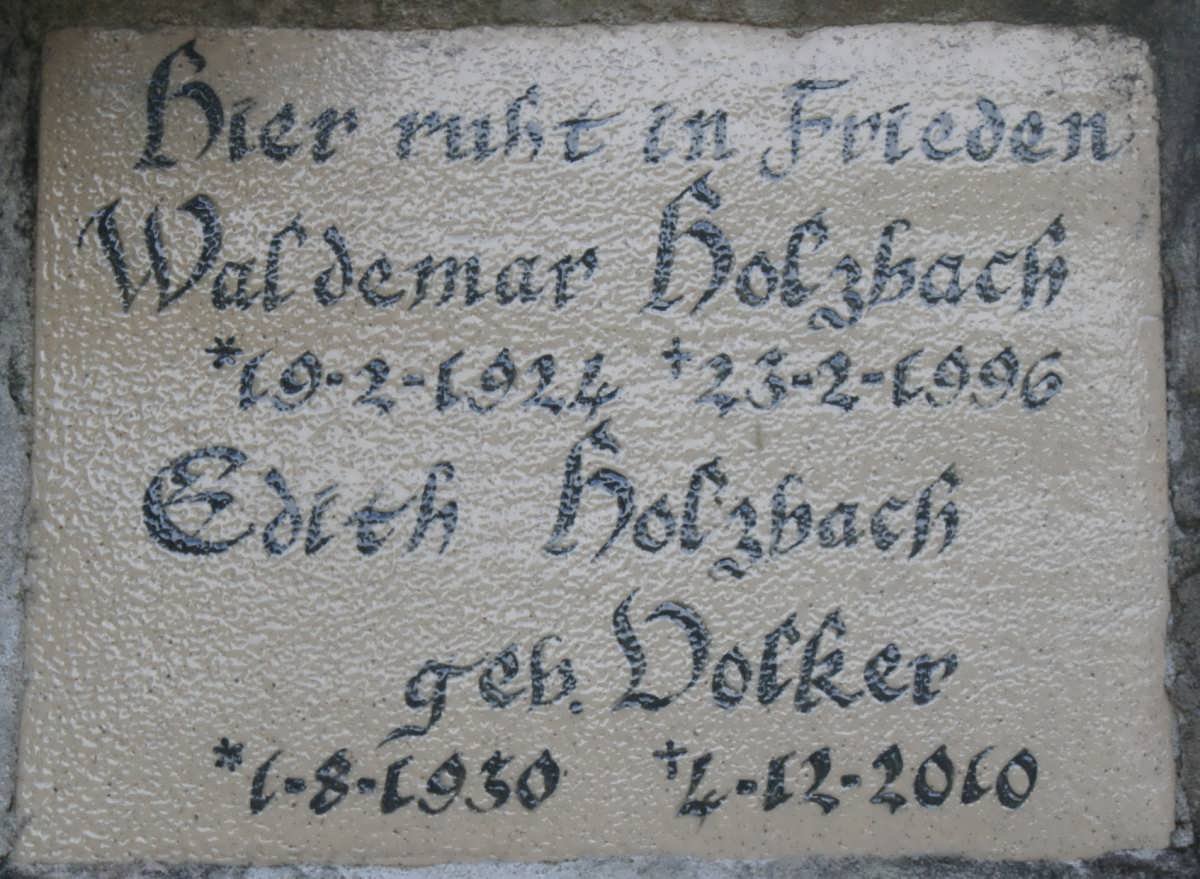 Hier ruht in Frieden
Waldemar Holzbach
*19-2-1924 †23-2-1996
Edith Holzbach
geb. Volker
*1-8-1930 †4-12-2010